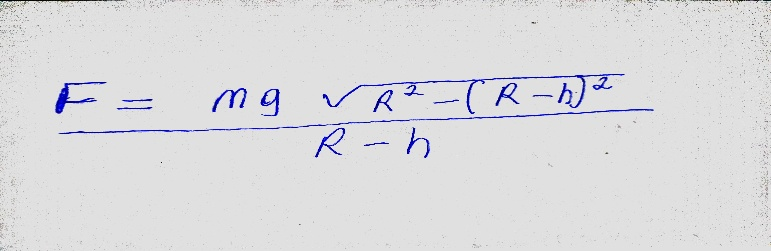 F = mg √R² - (R - h)²
R - h